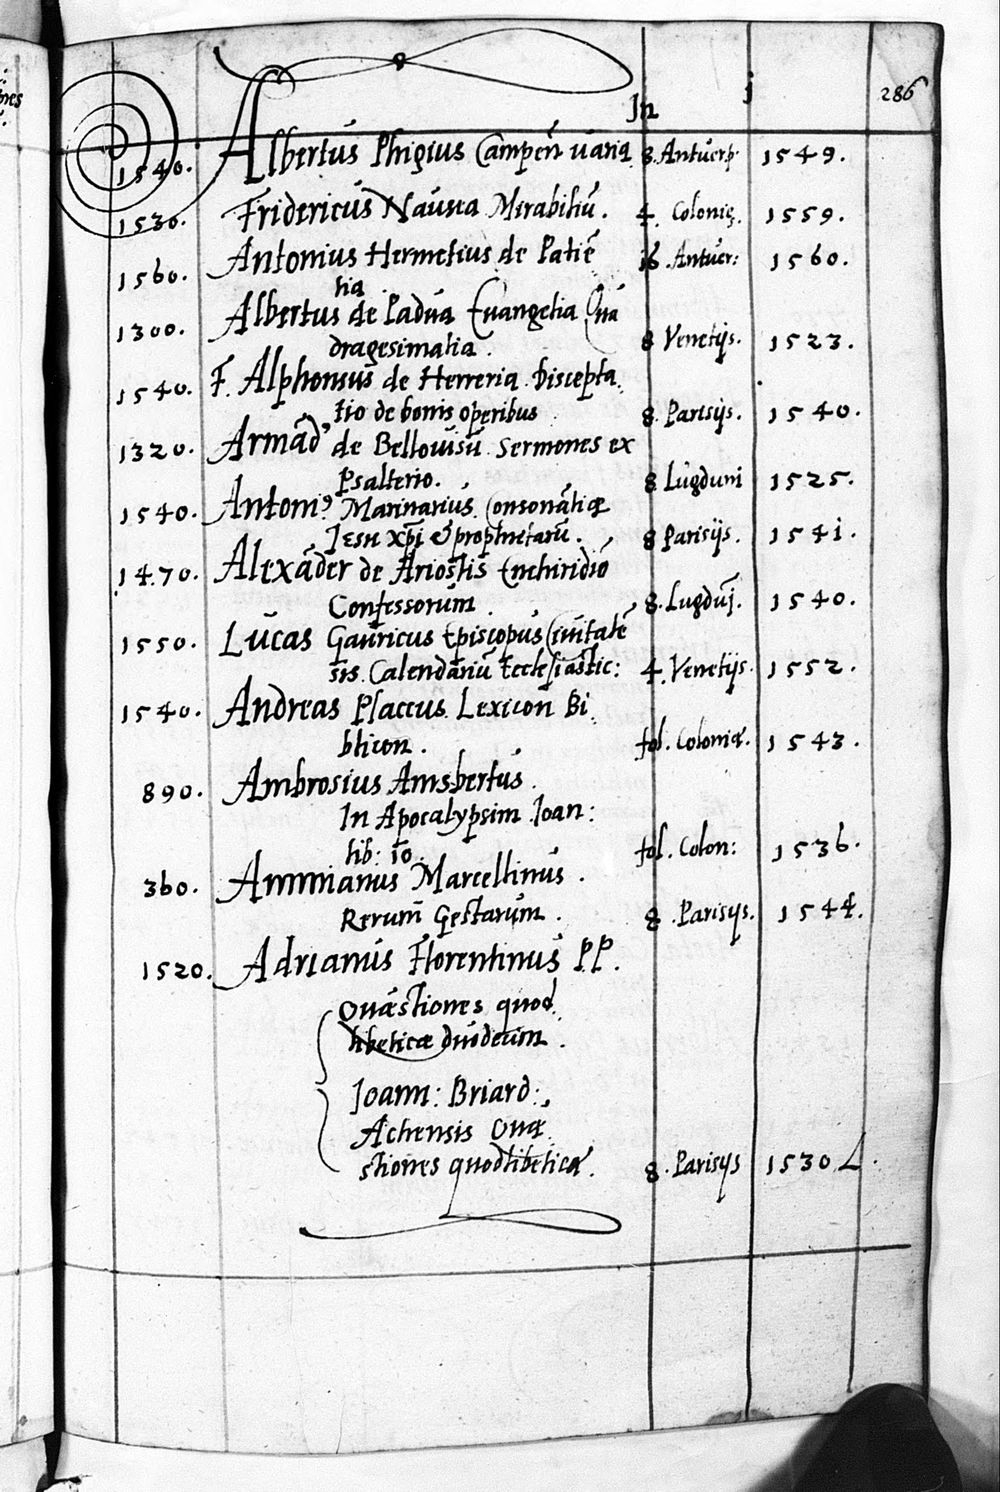 286
In j
1540. Albertus Phigius Campeñ varia 8. Antuerp. 1549.
1530. Fridericus Nausea Mirabiliũ. 4. Colonię. 1559.
1560. Antonius Hermetius de Patiẽ 16. Antuer: 1560.
tia
1300. Albertus de Padua Euangelia Qua
dragesimalia. 8 Venetijs. 1523.
1540. F. Alphonsus de Herreria Discepta
tio de bonis operibus 8. Parisijs. 1540.
1320. Armãd' de Bellouisu Sermones ex
Psalterio. 8 Lugduni 1525.
1540. Antoni9 Marinarius Consonãtiæ
Iesu xp̃i & prophetarũ. 8 Parisijs. 1541.
1470. Alexãder de Ariostis Enchiridiõ
Confessorum. 8. Lugduj. 1540.
1550. Lucas Gauricus Episcopus Ciuitatẽ
sis. Calendariũ Ecclesiastic: 4. Venetijs. 1552.
1540. Andreas Placcus Lexicon Bi
blicon. fol. Coloniæ. 1543.
890. Ambrosius Amsbertus.
In Apocalypsim Ioan:
lib: 10. fol. Colon: 1536.
360. Ammianus Marcellinus.
Rerum Gestarum. 8. Parisijs. 1544.
1520. Adrianus Florentinus P.P.
Quæstiones quod
libeticæ duodecim.
Ioann: Briard:
Achensis Quæ
stiones quodlibeticæ. 8. Parisijs 1530